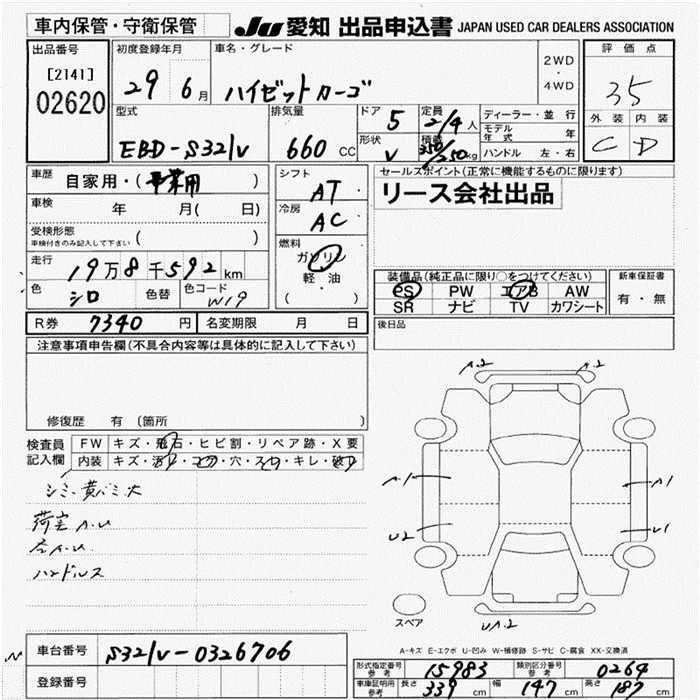 車内保管・守衛保管
JU 愛知 出品申込書 JAPAN USED CAR DEALERS ASSOCIATION
出品番号
[2141]
02620
初度登録年月
29 6月
車名・グレード
ハイゼットカーゴ
2WD
・
4WD
評価点
35
外装 内装
C D
型式
EBD-S321V
排気量
660 CC
ドア 5
形状 V
定員 2/4人
積載 350/250kg
ディーラー・並行
モデル年式 年
ハンドル 左・右
車歴
自家用・(事業用 )
車検 年 月( 日)
受検形態
車検付きのみ記入して下さい ( )
走行
19万8千592km
色 シロ 色替 色コード W19
シフト
AT
冷房
AC
燃料
ガソリン
軽・油
( )
セールスポイント(正常に機能するものに限ります)
リース会社出品
装備品(純正品に限り○をつけてください)
PS PW エアB AW
SR ナビ TV カワシート
新車保証書
有・無
後日品
R券 7340 円 名変期限 月 日
注意事項申告欄(不具合内容等は具体的に記入して下さい)
修復歴 有 (箇所 )
検査員記入欄
FW キズ・飛石・ヒビ割・リペア跡・X要
内装 キズ・汚れ・コゲ・穴・スレ・キレ・破れ
シミ、黄バミ大
荷室 A.U
ハンドルス
A.2 A.2
A.1 A1
U2 U1
UA.2
スペア
A-キズ E-エクボ U-凹み W-補修跡 S-サビ C-腐食 XX-交換済
車台番号 S321V-0326706
登録番号
形式指定番号 参考 15983 類別区分番号 参考 0264
車庫証明用 参考 長さ 339cm 幅 147cm 高さ 187cm